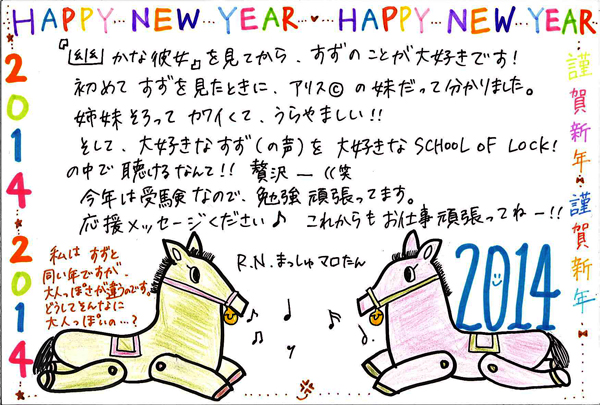 HAPPY NEW YEAR ♥ HAPPY NEW YEAR
2014★2014
謹賀新年◆謹賀新年
『幽かな彼女』を見てから、すずのことが大好きです!
初めて すずを見たときに、アリス© の妹だって分かりました。
姉妹そろって カワイくて、うらやましい!!
そして、大好きなすず(の声)を 大好きな SCHOOL OF LOCK!
の中で 聴けるなんて!! 贅沢ー((笑
今年は受験なので、勉強 頑張ってます。
応援メッセージください♪ これからもお仕事頑張ってねー!!
R.N.まっしゅマロたん
私は すずと
同い年ですが、
大人っぽさが違うのです。
どうしてそんなに
大人っぽいの…?
2014